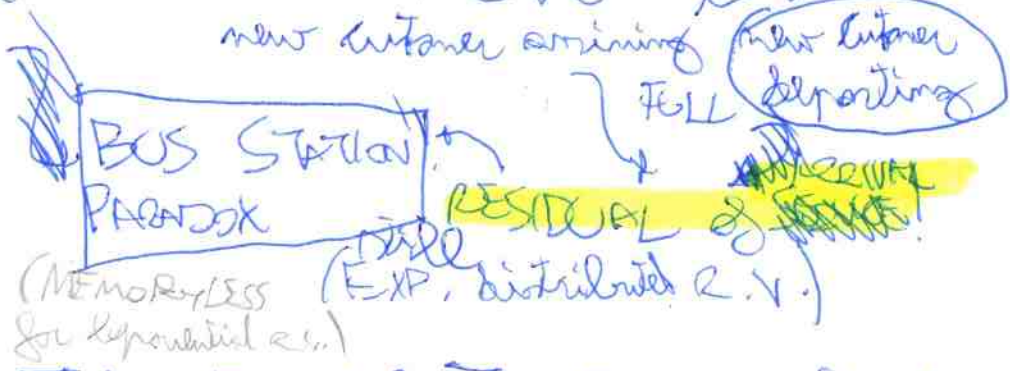 new customer arriving
new customer
departing
TELL
BUS STATION
PARADOX
ARRIVAL
RESIDUAL of
(EXP. distributed R.V.)
(MEMORYLESS
for exponential